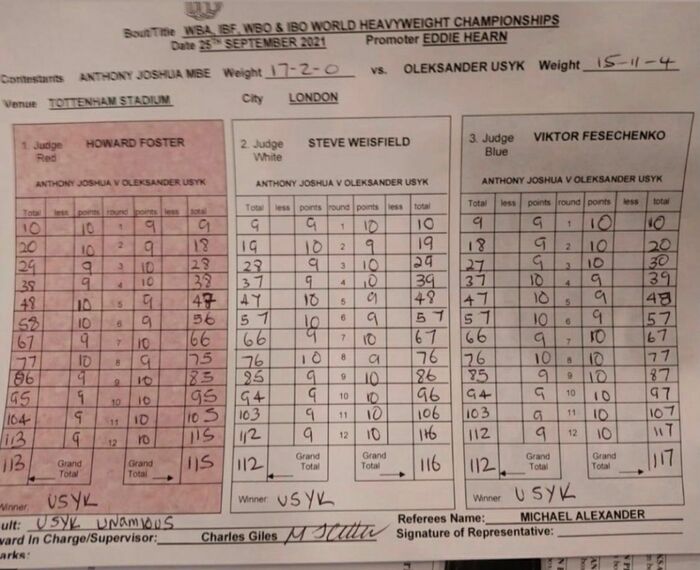 Bout Title WBA, IBF, WBO & IBO WORLD HEAVYWEIGHT CHAMPIONSHIPS
Date 25TH SEPTEMBER 2021 Promoter EDDIE HEARN
Contestants ANTHONY JOSHUA MBE Weight 17-2-0 vs. OLEKSANDER USYK Weight 15-11-4
Venue TOTTENHAM STADIUM City LONDON
1. Judge HOWARD FOSTER
Red
ANTHONY JOSHUA V OLEKSANDER USYK
Total less points round points less total
10 10 1 9 9
20 10 2 9 18
29 9 3 10 28
38 9 4 10 38
48 10 5 9 47
58 10 6 9 56
67 9 7 10 66
77 10 8 9 75
86 9 9 10 85
95 9 10 10 95
104 9 11 10 105
113 9 12 10 115
113 Grand Total Grand Total 115
Winner: USYK
2. Judge STEVE WEISFIELD
White
ANTHONY JOSHUA V OLEKSANDER USYK
Total less points round points less total
9 9 1 10 10
19 10 2 9 19
28 9 3 10 29
37 9 4 10 39
47 10 5 9 48
57 10 6 9 57
66 9 7 10 67
76 10 8 9 76
85 9 9 10 86
94 9 10 10 96
103 9 11 10 106
112 9 12 10 116
112 Grand Total Grand Total 116
Winner: USYK
3. Judge VIKTOR FESECHENKO
Blue
ANTHONY JOSHUA V OLEKSANDER USYK
Total less points round points less total
9 9 1 10 10
18 9 2 10 20
27 9 3 10 30
37 10 4 9 39
47 10 5 9 48
57 10 6 9 57
66 9 7 10 67
76 10 8 10 77
85 9 9 10 87
94 9 10 10 97
103 9 11 10 107
112 9 12 10 117
112 Grand Total Grand Total 117
Winner: USYK
ult: USYK UNAMIOUS
ward In Charge/Supervisor: Charles Giles
Referees Name: MICHAEL ALEXANDER
Signature of Representative:
arks: